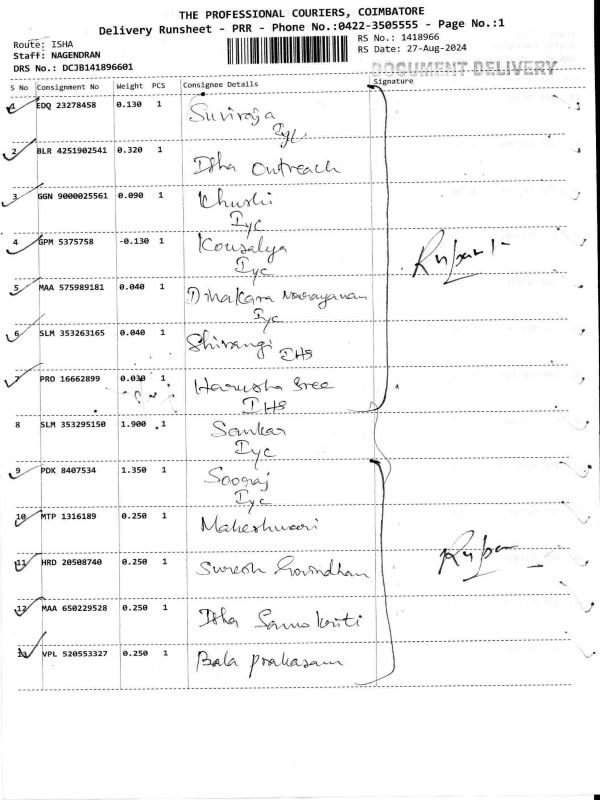 THE PROFESSIONAL COURIERS, COIMBATORE
Delivery Runsheet - PRR - Phone No.:0422-3505555 - Page No.:1
Route: ISHA
RS No.: 1418966
Staff: NAGENDRAN
RS Date: 27-Aug-2024
DRS No.: DCJB141896601
DOCUMENT DELIVERY
S No Consignment No Weight PCS Consignee Details Signature
1 EDQ 23278458 0.130 1 Suviraja
Iyc
2 BLR 4251902541 0.320 1 Isha Outreach
3 GGN 9000025561 0.090 1 Khushi
Iyc
4 GPM 5375758 -0.130 1 Kousalya
Iyc
5 MAA 575989181 0.040 1 Dinakara Narayanan
Iyc
6 SLM 353263165 0.040 1 Shivangi
IHS
7 PRO 16662899 0.030 1 Harusha Sree
IHS
8 SLM 353295150 1.900 1 Sankar
Iyc
9 PDK 8407534 1.350 1 Sooraj
Iyc
10 MTP 1316189 0.250 1 Maheshwari
11 HRD 20508740 0.250 1 Suresh Govindhan
12 MAA 650229528 0.250 1 Isha Samskriti
13 VPL 520553327 0.250 1 Bala prakasam